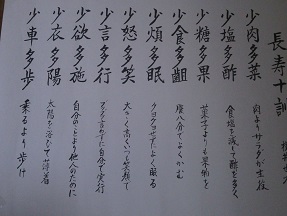 長寿十訓
少肉多菜
肉よりサラダが主役
少塩多酢
食塩を減し酢を多く
少糖多果
菓子よりも果物を
少食多齟
腹八分でよくかむ
少煩多眠
クヨクヨせずによく眠る
少怒多笑
大きく高くいつも笑顔で
少言多行
ブツブツ言わずに自分で実行
少欲多施
自分のことより他人のために
少衣多陽
太陽を浴びて薄着
少車多歩
乗るより歩け